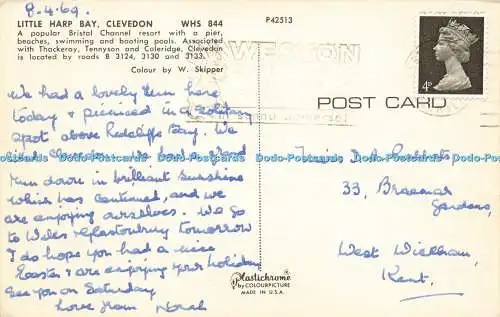 8.4.69.
LITTLE HARP BAY, CLEVEDON WHS 844
A popular Bristol Channel resort with a pier,
beaches, swimming and boating pools. Associated
with Thackeray, Tennyson and Coleridge, Clevedon
is located by roads B 3124, 3130 and 3133.
Colour by W. Skipper
We had a lovely run here
today & picniced in a solitary
spot above Redcliffe Bay. We
like Clevedon. We had a good
run down in brilliant sunshine
which has continued, and we
are enjoying ourselves. We go
to Wells & Glastonbury tomorrow
I do hope you had a nice
Easter & are enjoying your holiday
See you on Saturday
Love from Norah
P42513
WESTON
4D
POST CARD
Dodo-Postcards Dodo-Postcards Dodo-Postcards Dodo-Postcards
Roberts
33, Braemar
Gardens,
West Wickham,
Kent.
Plastichrome
by COLOURPICTURE
MADE IN U.S.A.